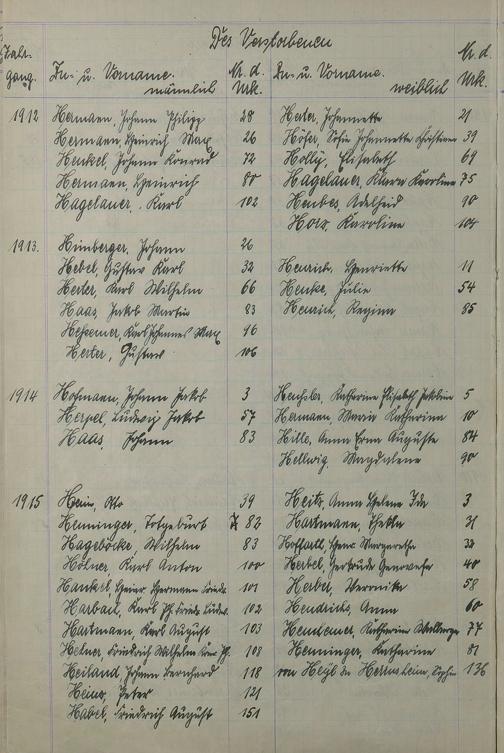 Des Verstorbenen
Jahr- Zu- u. Vorname. Nr. d. Zu- u. Vorname. Nr. d.
gang. männlich Urk. weiblich Urk.
1912 Hermann, Johann Philipp 28 Heter, Johannette 21
Hermann, Heinrich Max 26 Höfer, Sofia Johannette Christiane 39
Henkel, Johann Konrad 72 Holly, Elisabeth 69
Hermann, Heinrich 80 Hagelauer, Klara Karoline 75
Hagelauer, Karl 102 Adelheid 90
Horo, Karoline 104
1913. Himberger, Johann 26
Hebel, Gustav Karl 32 Henrich, Henriette 11
Herter, Karl Wilhelm 66 Henke, Julie 54
Haas, Jakob Martin 83 Heinrich, Regina 85
Karl Johannes Max 96
Herter, Gustav 106
1914 Hofmann, Johann Jakob 3 Katharina Elisabeth Jakobine 5
Herpel, Ludwig Jakob 57 Hermann, Maria Katharina 10
Haas, Johann 83 Hille, Anna Erna Auguste 84
Hellwig, Magdalene 90
1915 Hein, Otto 39 Heitz, Anna Helene Ida 3
Henninger, Totgeburt 82 Hartmann, Thekla 31
Hageböcke, Wilhelm 83 Margaretha 32
Hölner, Karl Anton 100 Herbel, Gertrude Genovefa 40
Hankel, Heinr. Hermann Friedr. 101 Herbel, Veronika 58
Harbart, Karl Ph. Friedr. Ludw. 102 Hendrichs, Anna 60
Hartmann, Karl August 103 Katharina Walburga 77
Hetner Friedrich Wilhelm 108 Henninger, Katharina 81
Heiland, Johann Bernhard 118 von Heyl zu Herrnsheim, Sophie 136
Heinz, Peter 121
Habel, Friedrich August 151